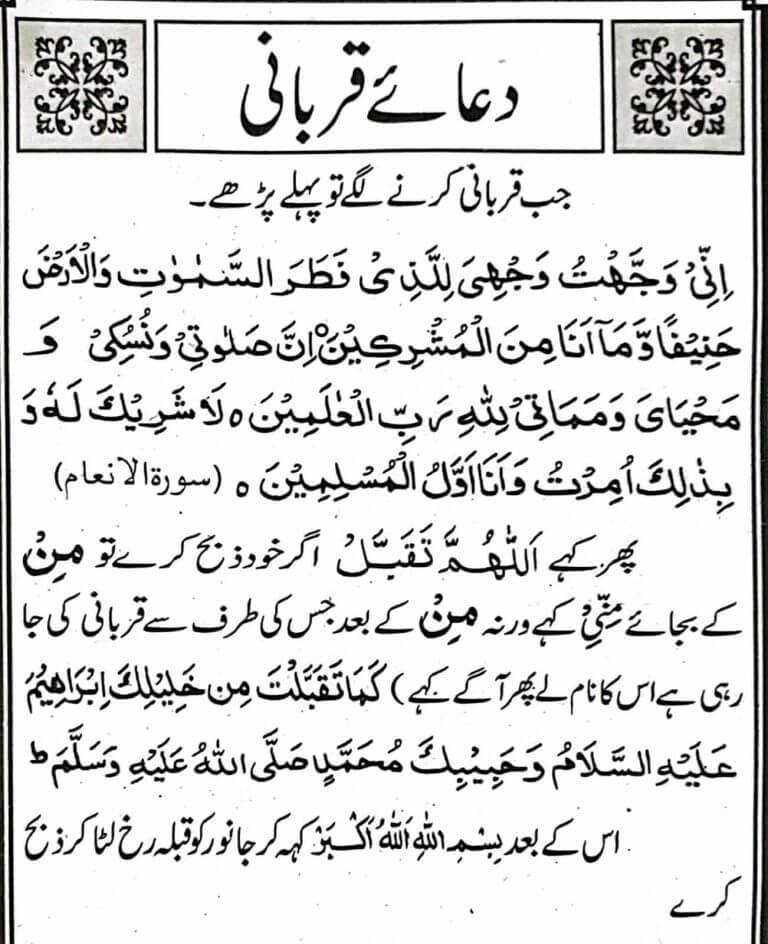 دعائے قربانی
جب قربانی کرنے لگے تو پہلے پڑھے۔
اِنِّیْ وَجَّهْتُ وَجْهِیَ لِلَّذِیْ فَطَرَ السَّمٰوٰتِ وَالْاَرْضَ
حَنِیْفًا وَّمَآ اَنَا مِنَ الْمُشْرِكِیْنَ ۝ اِنَّ صَلٰوتِیْ وَنُسُكِیْ وَ
مَحْیَایَ وَمَمَاتِیْ لِلّٰهِ رَبِّ الْعٰلَمِیْنَ ہ لَا شَرِیْكَ لَهٗ وَ
بِذٰلِكَ اُمِرْتُ وَاَنَا اَوَّلُ الْمُسْلِمِیْنَ ہ (سورۃ الانعام)
پھر کہے اَللّٰهُمَّ تَقَبَّلْ اگر خود ذبح کرے تو مِنْ
کے بجائے مِنِّیْ کہے ورنہ مِنْ کے بعد جس کی طرف سے قربانی کی جا
رہی ہے اس کا نام لے پھر آگے کہے) كَمَا تَقَبَّلْتَ مِن خَلِیْلِكَ اِبْرَاهِیْمَ
عَلَیْهِ السَّلَامُ وَحَبِیْبِكَ مُحَمَّدٍ صَلَّی اللّٰهُ عَلَیْهِ وَسَلَّمَ ط
اس کے بعد بِسْمِ اللّٰهِ اَللّٰهُ اَكْبَرْ کہہ کر جانور کو قبلہ رخ لٹا کر ذبح
کرے